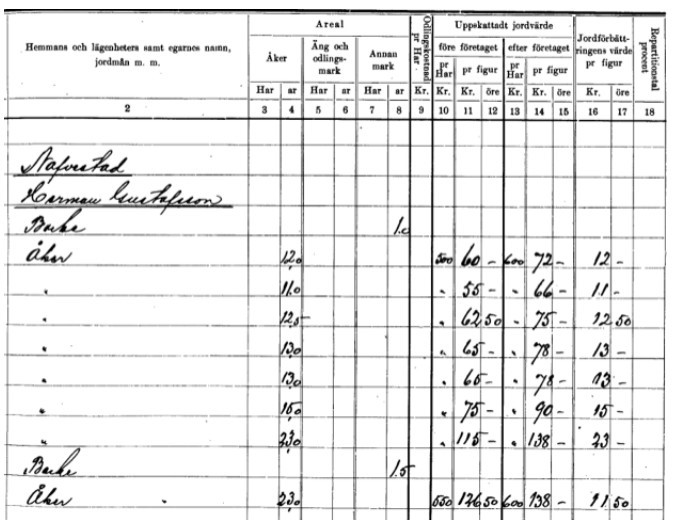 Areal
Odlingskostnad pr Har
Uppskattadt jordvärde
Jordförbättringens värde pr figur
Repartitionstal procent
Hemmans och lägenheters samt egarnes namn, jordmån m. m.
Åker
Äng och odlingsmark
Annan mark
före företaget
efter företaget
pr Har
pr figur
pr Har
pr figur
Har ar Har ar Har ar Kr. Kr. Kr. öre Kr. Kr. öre Kr. öre
2 3 4 5 6 7 8 9 10 11 12 13 14 15 16 17 18
Herman Gustafsson
Backe 1.0
Åker 12,0 500 60 - 600 72 - 12 -
" 11,0 " 55 - " 66 - 11 -
" 12,5 " 62 50 " 75 - 12 50
" 13,0 " 65 - " 78 - 13 -
" 13,0 " 65 - " 78 - 13 -
" 15,0 " 75 - " 90 - 15 -
" 23,0 " 115 - " 138 - 23 -
Backe 1.5
Åker 23,0 550 126 50 600 138 - 11 50